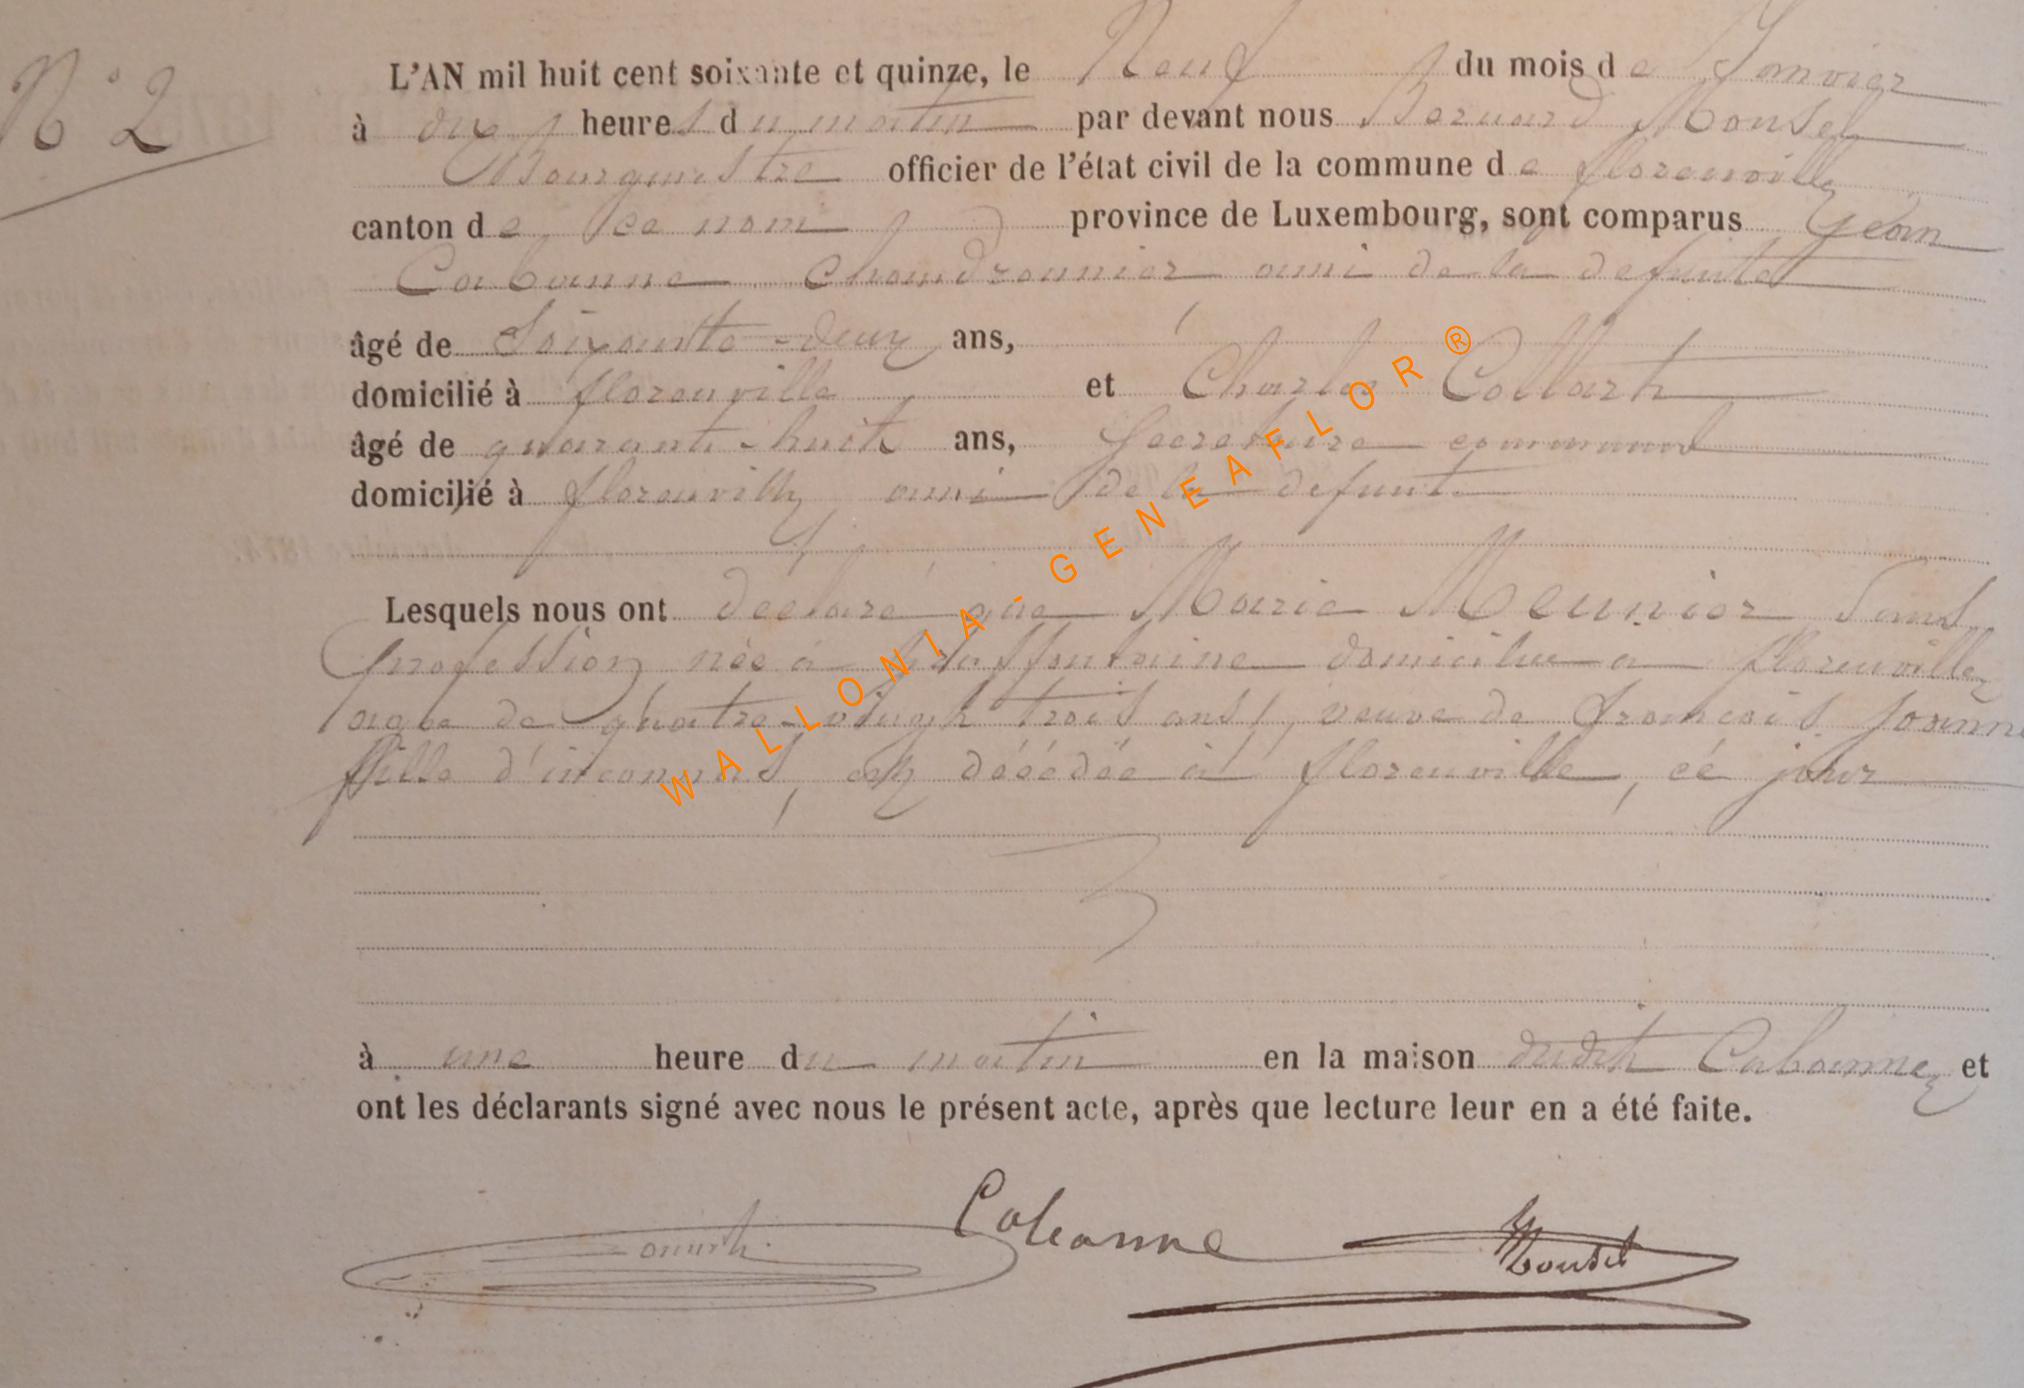 N° 2
L'AN mil huit cent soixante et quinze, le Neuf du mois de Janvier
à dix heures du matin par devant nous Bernard Monsel
Bourgmestre officier de l'état civil de la commune de florenville
canton de ce nom province de Luxembourg, sont comparus Jean
Cabanne Chaudronnier ami de la defunte
âgé de Soixante-deux ans,
domicilié à florenville et Charles Collart
âgé de quarante-huit ans, Secretaire communal
domicilié à florenville ami de la defunte
Lesquels nous ont déclaré que Marie Meunier Sans
profession née à domiciliée à florenville
agée de quatre-vingt trois ans, veuve de francois
fille d'inconnus, est décédée à florenville, cé jour
à une heure du matin en la maison dudit Cabanne et
ont les déclarants signé avec nous le présent acte, après que lecture leur en a été faite.
Cabanne Monsel
WALLONIA - GENEAFLOR ®